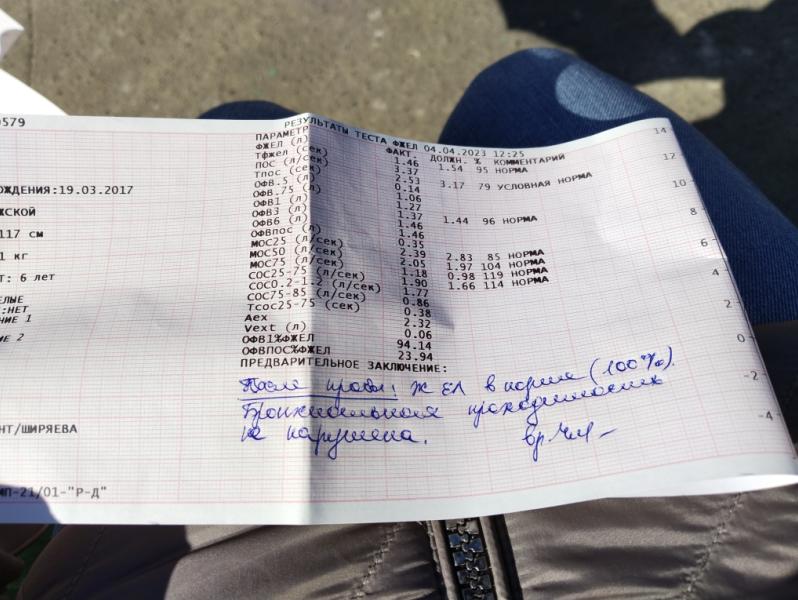 0579
ОЖДЕНИЯ:19.03.2017
ЖСКОЙ
117 см
1 кг
Т: 6 лет
ЕЛЫЕ
:НЕТ
НИЕ 1
ИЕ 2
НТ/ШИРЯЕВА
МП-21/01-"Р-Д"
РЕЗУЛЬТАТЫ ТЕСТА ФЖЕЛ 04.04.2023 12:25
ПАРАМЕТР ФАКТ. ДОЛЖН. % КОММЕНТАРИЙ
ФЖЕЛ (л) 1.46 1.54 95 НОРМА
Тфжел (сек) 3.37
ПОС (л/сек) 2.53 3.17 79 УСЛОВНАЯ НОРМА
Тпос (сек) 0.14
ОФВ.5 (л) 1.06
ОФВ.75 (л) 1.27
ОФВ1 (л) 1.37 1.44 96 НОРМА
ОФВ3 (л) 1.46
ОФВ6 (л) 1.46
ОФВпос (л) 0.35
МОС25 (л/сек) 2.39 2.83 85 НОРМА
МОС50 (л/сек) 2.05 1.97 104 НОРМА
МОС75 (л/сек) 1.18 0.98 119 НОРМА
СОС25-75 (л/сек) 1.90 1.66 114 НОРМА
СОС0.2-1.2 (л/сек) 1.77
СОС75-85 (л/сек) 0.86
Тсос25-75 (сек) 0.38
Aex 2.32
Vext (л) 0.06
ОФВ1%ФЖЕЛ 94.14
ОФВПОС%ФЖЕЛ 23.94
ПРЕДВАРИТЕЛЬНОЕ ЗАКЛЮЧЕНИЕ:
После пробы: ЖЕЛ в норме (100%).
Бронхиальная проходимость
не нарушена. вр.
14
12
10
8
6
4
2
0
-2
-4